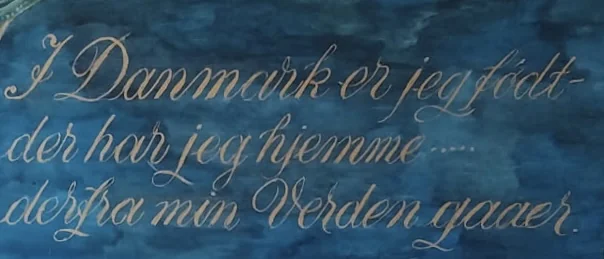 I Danmark er jeg födt-
der har jeg hjemme .....
derfra min Verden gaaer.